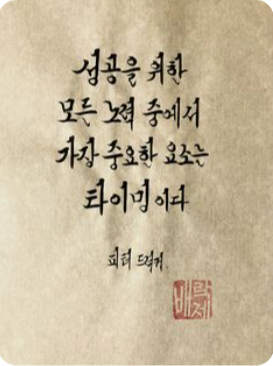 성공을 위한
모든 노력 중에서
가장 중요한 요소는
타이밍이다
피터 드러커.